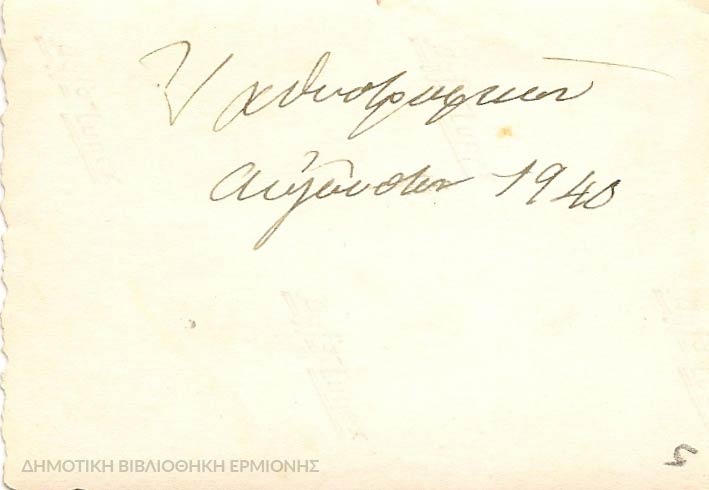 Ἰχθυοτροφεῖον
Αὔγουστον 1940
5
ΔΗΜΟΤΙΚΗ ΒΙΒΛΙΟΘΗΚΗ ΕΡΜΙΟΝΗΣ